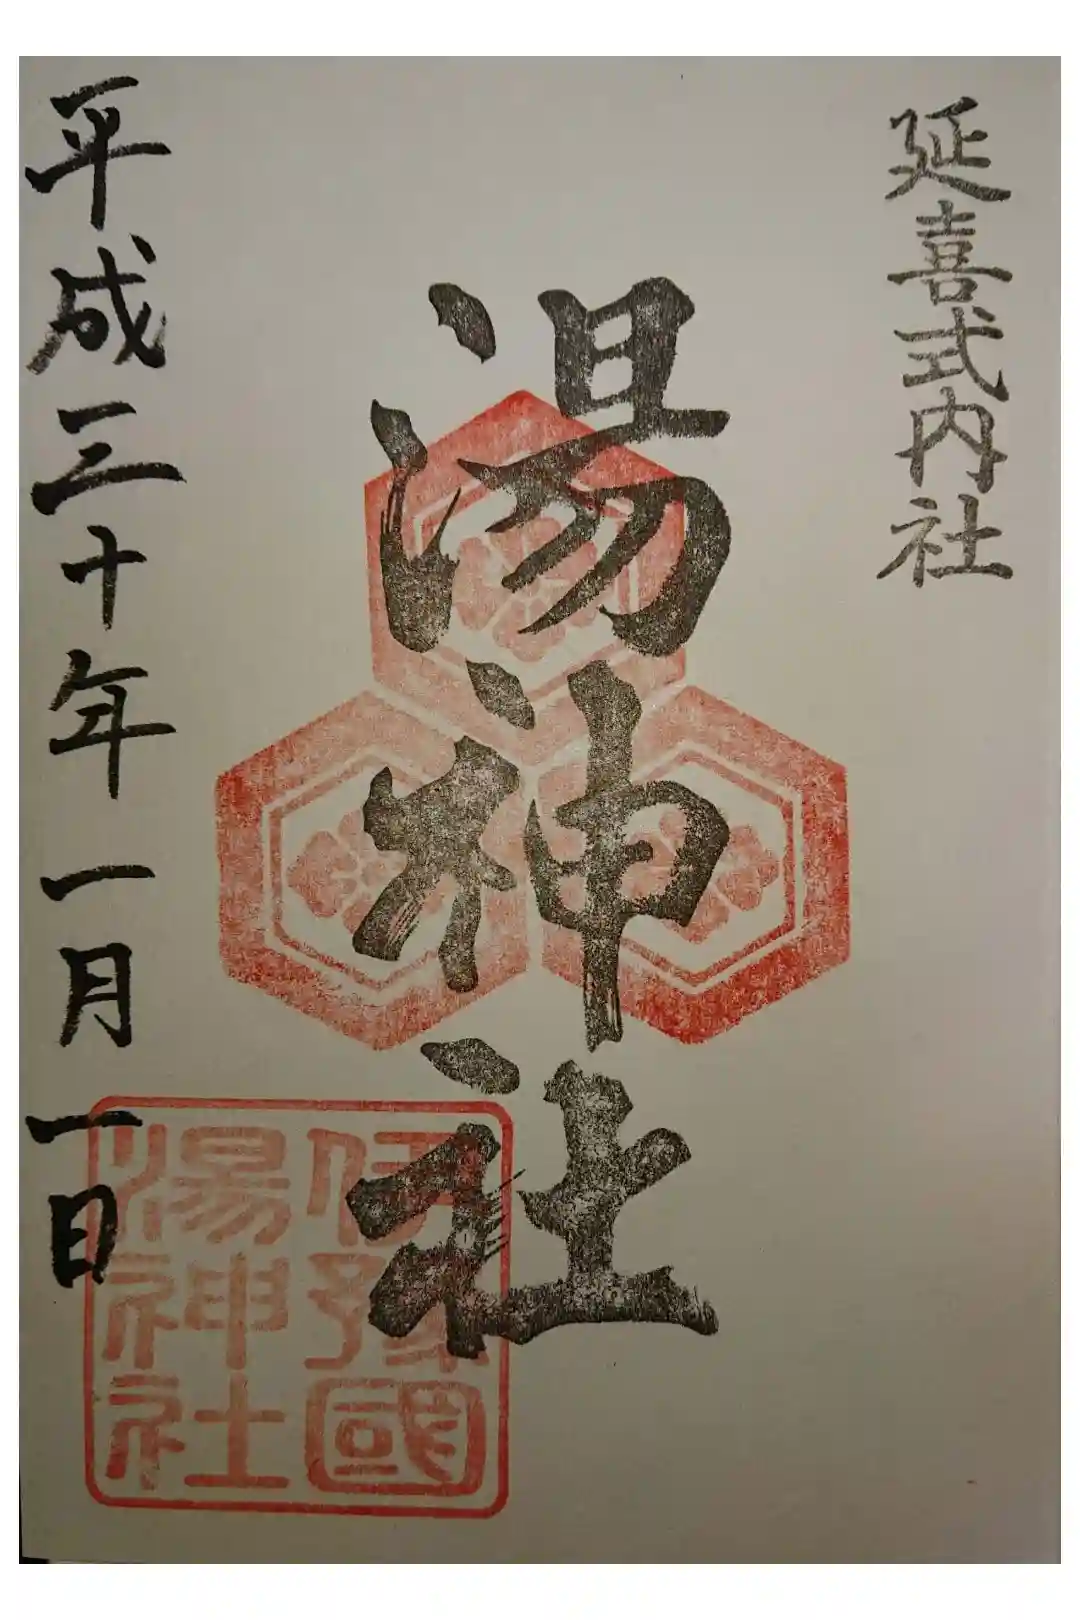 延喜式内社
湯神社
伊豫國
湯神社
平成三十年一月一日